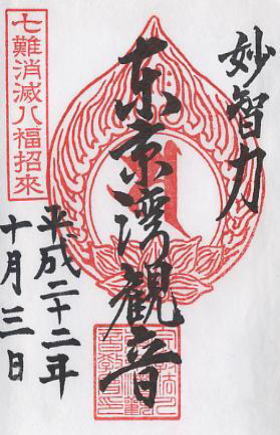 妙智力
東京湾観音
平成二十二年
十月三日
七難消滅八福招来